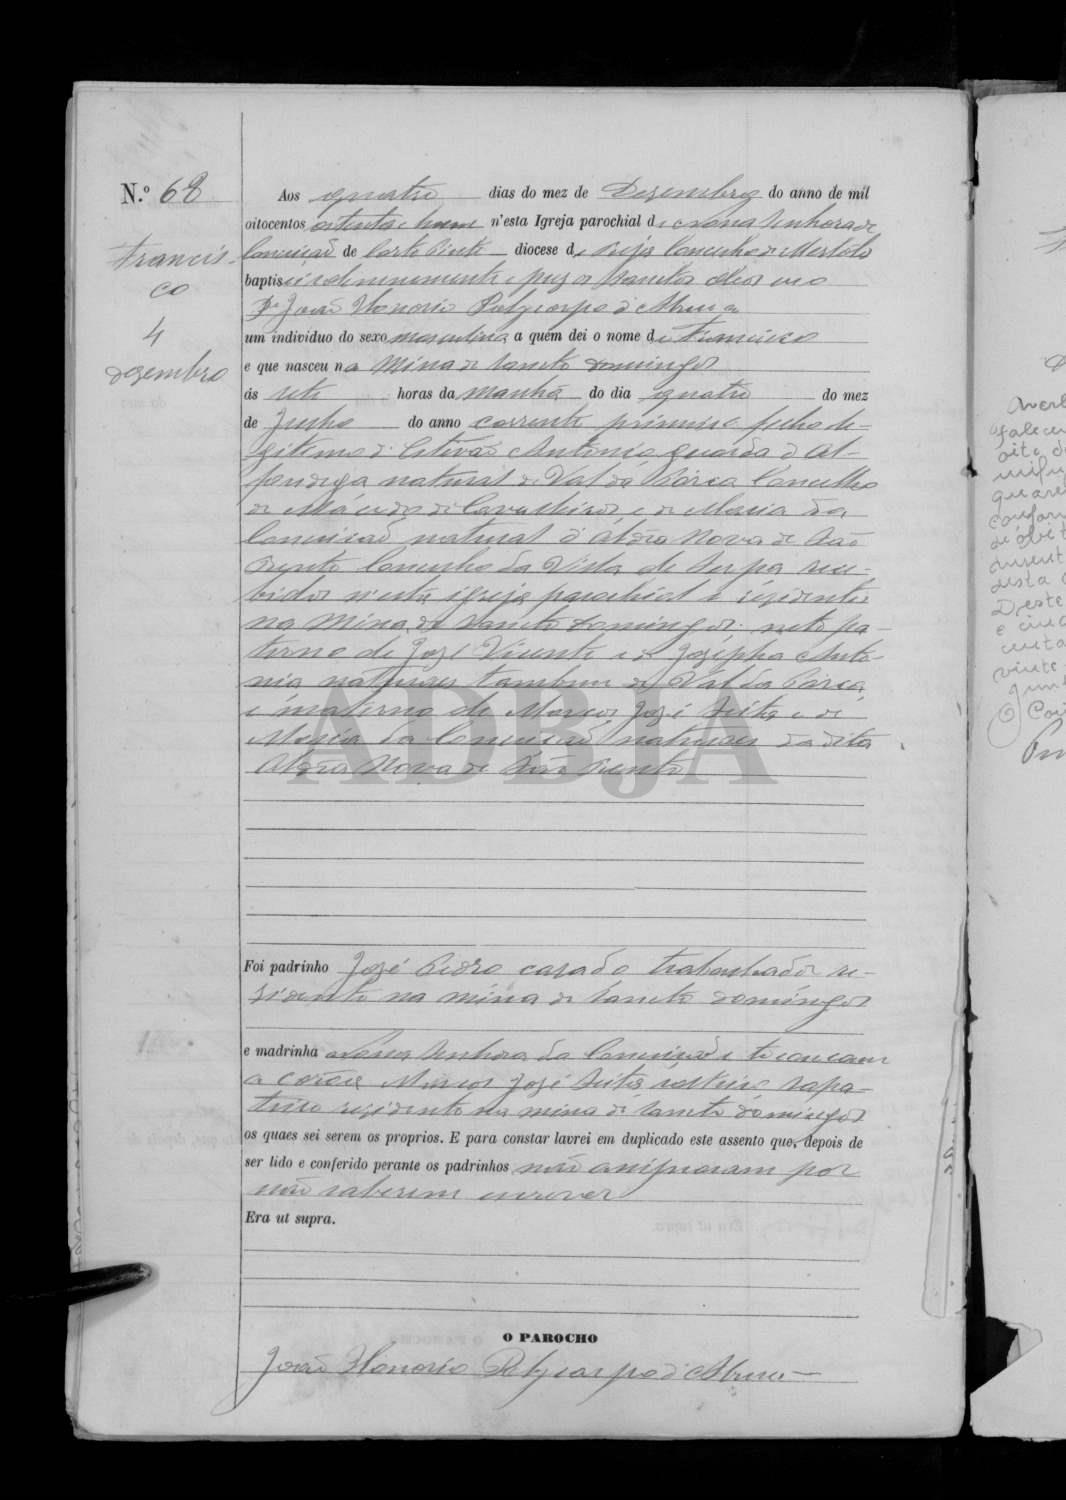 N.º 68
Francis-
co
4
dezembro
Aos quatro dias do mez de Dezembro do anno de mil
oitocentos oitenta e nove n'esta Igreja parochial de Nossa Senhora da
Conceição de Corte Pinto diocese de Beja Concelho de Mertola
baptisei solemnemente e puz os Sanctos oleos eu o
Pe João Honorio Polycarpo d'Abreu a
um individuo do sexo masculino a quem dei o nome de Francisco
e que nasceu na Mina de Sancto Domingos
ás sete horas da manhã do dia quatro do mez
de Junho do anno corrente primeiro filho le-
gitimo de Estevão Antonio guarda d'Al-
fandega natural de Val da Porca Concelho
de Macedo de Cavalleiros e de Maria da
Conceição natural d'Aldêa Nova de São
Bento Concelho da Villa de Serpa rece-
bidos n'esta igreja parochial e residentes
na Mina de Sancto Domingos: neto pa-
terno de José Vicente e de Josepha Anto-
nia naturaes tambem de Val da Porca
e materno de Marcos José Seita e de
Maria da Conceição naturaes da dita
Aldêa Nova de São Bento
Foi padrinho José Pedro casado trabalhador re-
sidente na mina de Sancto Domingos
e madrinha Nossa Senhora da Conceição e tocou com
a corôa Marcos José Seita solteiro sapa-
teiro residente na mina de Sancto Domingos
os quaes sei serem os proprios. E para constar lavrei em duplicado este assento que, depois de
ser lido e conferido perante os padrinhos não assignaram por
não saberem escrever
Era ut supra.
O PAROCHO
João Honorio Polycarpo d'Abreu
ADBJA